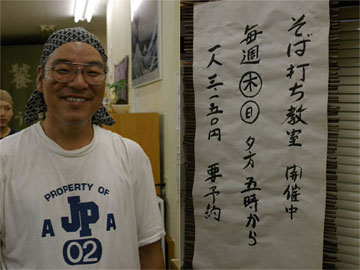 そば打ち教室 開催中
毎週 木 日 夕方 五時から
一人 三、一五〇円 要予約
PROPERTY OF
A JP A
02